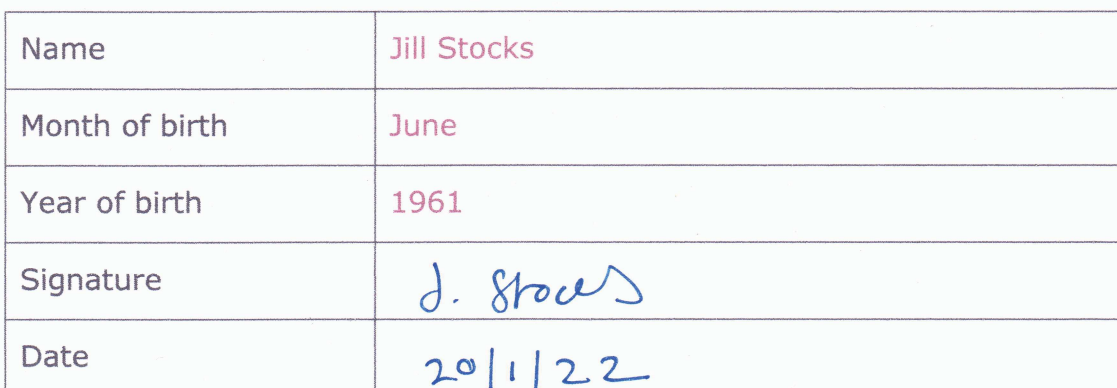 Name Jill Stocks
Month of birth June
Year of birth 1961
Signature J. Stocks
Date 20/1/22